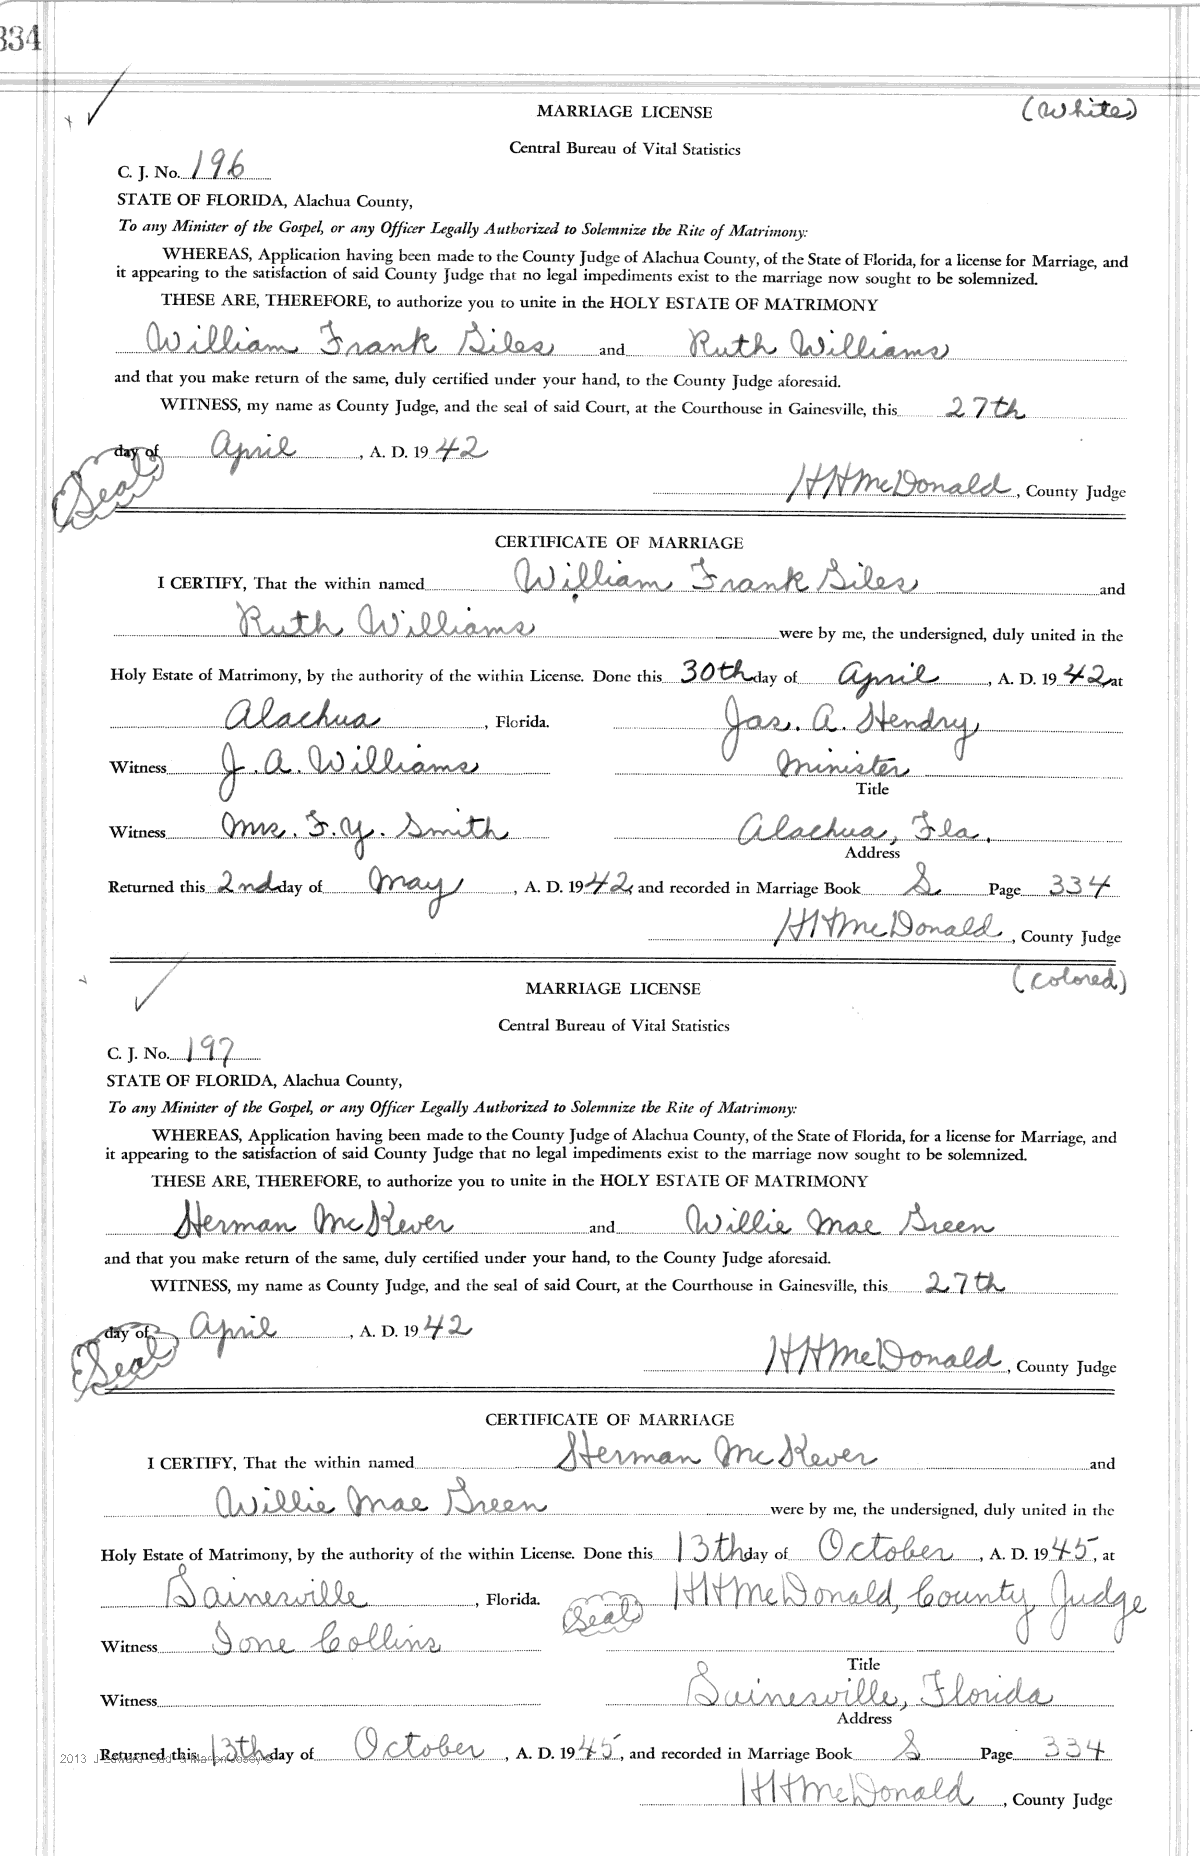 334
(White)
MARRIAGE LICENSE
Central Bureau of Vital Statistics
C. J. No. 196
STATE OF FLORIDA, Alachua County,
To any Minister of the Gospel, or any Officer Legally Authorized to Solemnize the Rite of Matrimony:
WHEREAS, Application having been made to the County Judge of Alachua County, of the State of Florida, for a license for Marriage, and
it appearing to the satisfaction of said County Judge that no legal impediments exist to the marriage now sought to be solemnized.
THESE ARE, THEREFORE, to authorize you to unite in the HOLY ESTATE OF MATRIMONY
William Frank Giles and Ruth Williams
and that you make return of the same, duly certified under your hand, to the County Judge aforesaid.
WITNESS, my name as County Judge, and the seal of said Court, at the Courthouse in Gainesville, this 27th
day of April, A. D. 1942
(Seal) HHMcDonald, County Judge
CERTIFICATE OF MARRIAGE
I CERTIFY, That the within named William Frank Giles and
Ruth Williams were by me, the undersigned, duly united in the
Holy Estate of Matrimony, by the authority of the within License. Done this 30th day of April, A. D. 1942, at
Alachua, Florida. Jas. A. Hendry
Witness J. A. Williams Minister
Title
Witness Mrs. F. Y. Smith Alachua, Fla.
Address
Returned this 2nd day of May, A. D. 1942, and recorded in Marriage Book S Page 334
HHMcDonald, County Judge
(Colored)
MARRIAGE LICENSE
Central Bureau of Vital Statistics
C. J. No. 197
STATE OF FLORIDA, Alachua County,
To any Minister of the Gospel, or any Officer Legally Authorized to Solemnize the Rite of Matrimony:
WHEREAS, Application having been made to the County Judge of Alachua County, of the State of Florida, for a license for Marriage, and
it appearing to the satisfaction of said County Judge that no legal impediments exist to the marriage now sought to be solemnized.
THESE ARE, THEREFORE, to authorize you to unite in the HOLY ESTATE OF MATRIMONY
Herman McKever and Willie Mae Green
and that you make return of the same, duly certified under your hand, to the County Judge aforesaid.
WITNESS, my name as County Judge, and the seal of said Court, at the Courthouse in Gainesville, this 27th
day of April, A. D. 1942
(Seal) HHMcDonald, County Judge
CERTIFICATE OF MARRIAGE
I CERTIFY, That the within named Herman McKever and
Willie Mae Green were by me, the undersigned, duly united in the
Holy Estate of Matrimony, by the authority of the within License. Done this 13th day of October, A. D. 1945, at
Gainesville, Florida. (Seal) HHMcDonald, County Judge
Witness Ione Collins
Title
Witness Gainesville, Florida
Address
Returned this 13th day of October, A. D. 1945, and recorded in Marriage Book S Page 334
2013
HHMcDonald, County Judge